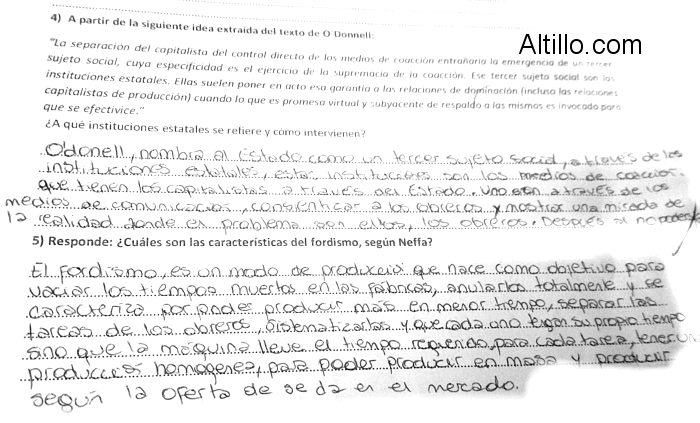 Altillo.com
4) A partir de la siguiente idea extraida del texto de O'Donnell:
"La separación del capitalista del control directo de los medios de coacción entrañaría la emergencia de un tercer
sujeto social, cuya especificidad es el ejercicio de la supremacía de la coacción. Ese tercer sujeto social son las
instituciones estatales. Ellas suelen poner en acto esa garantía a las relaciones de dominación (incluso las relaciones
capitalistas de producción) cuando lo que es promesa virtual y subyacente de respaldo a las mismas es invocado para
que se efectivice."
¿A qué instituciones estatales se refiere y cómo intervienen?
O'donell, nombra al Estado como un tercer sujeto social, a través de las
instituciones estatales, estas instituciones son los medios de coaccion.
que tienen los capitalistas a traves del Estado. uno a traves de los
medios de comunicacion, consientizar a los obreros y mostrar una mirada de
la realidad donde el problema son ellos, los obreros. Después si no
5) Responde: ¿Cuáles son las características del fordismo, según Neffa?
El fordismo, es un modo de produccio que nace como objetivo para
vaciar los tiempos muertos en las fábricas, anularlos totalmente y se
caracteriza por poder producir más en menor tiempo, separar las
tareas de los obreros, sistematizarlas y que cada uno tegan su propio tiempo
sino que la máquina lleve el tiempo requerido, para cada tarea, tener un
produccion homogenea, para poder producir en masa y producir
segun la oferta de se da en el mercado.